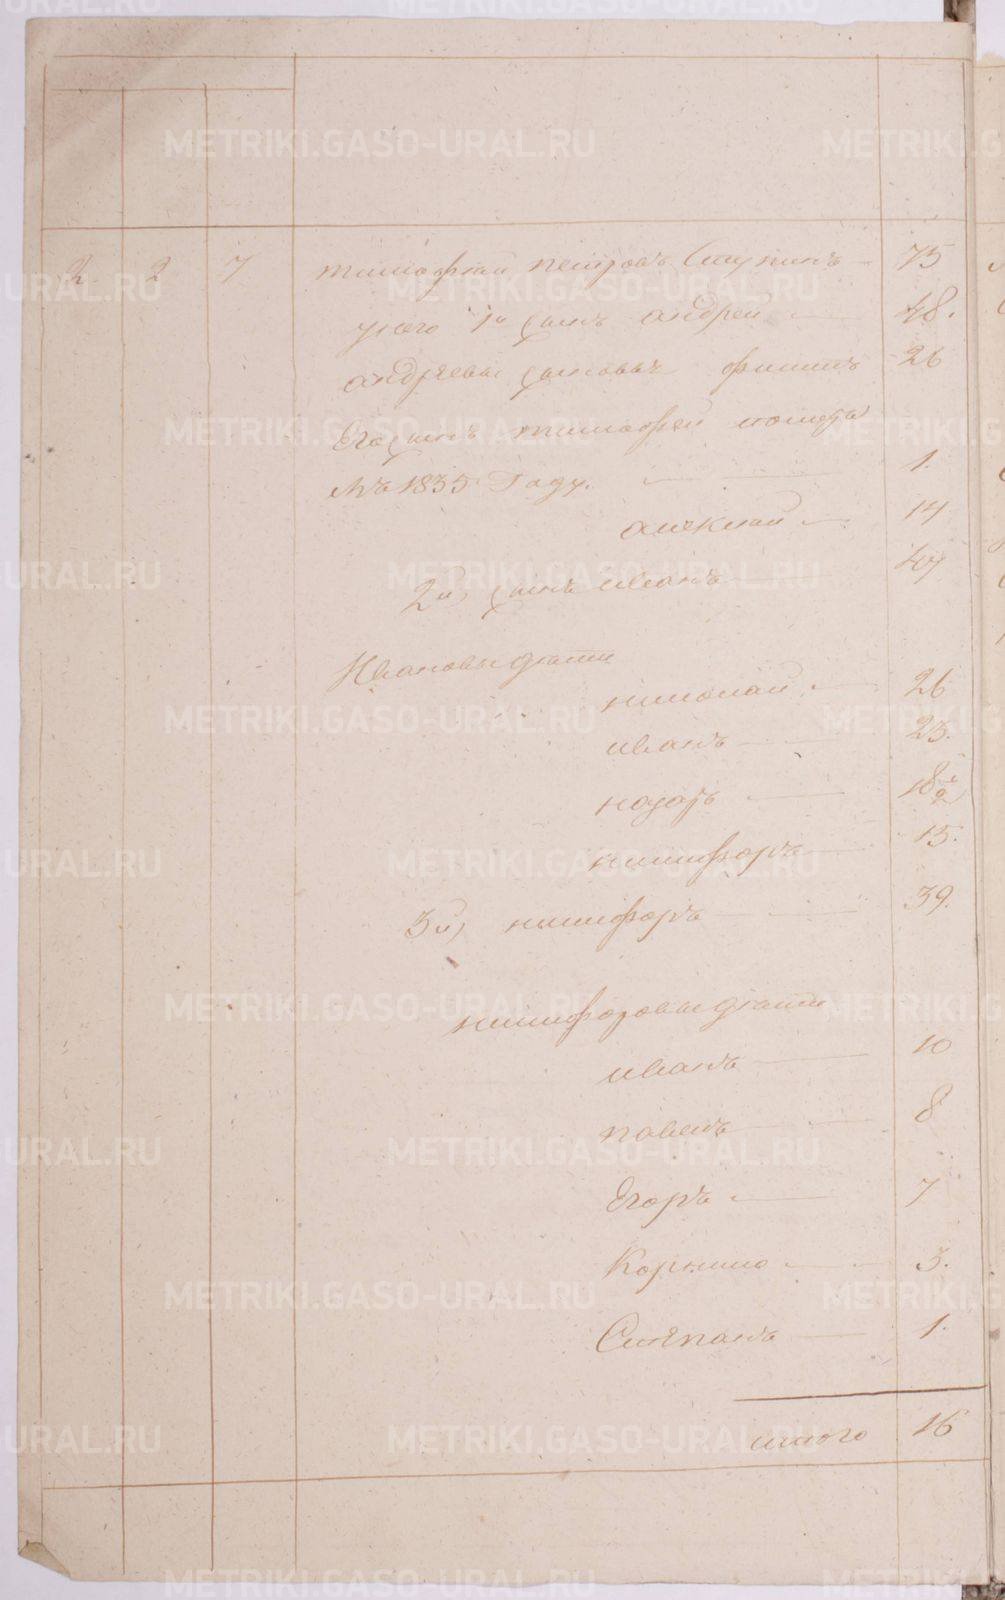 2 2 7 тимофей петровъ Ступинъ 75
у него 1й сынъ андрей 48.
андреевы сыновья филипъ 26
Его сынъ тимофей
1835 Году. 1.
алексей 14
2й, сынъ иванъ 47
Ивановы дети
николай 26
иванъ 23.
назаръ 18½
никифоръ 15.
3й, никифоръ 39.
никифоровы дети
иванъ 10
павелъ 8
Егоръ 7
Корнило 3.
Степанъ 1.
итого 16
METRIKI.GASO-URAL.RU